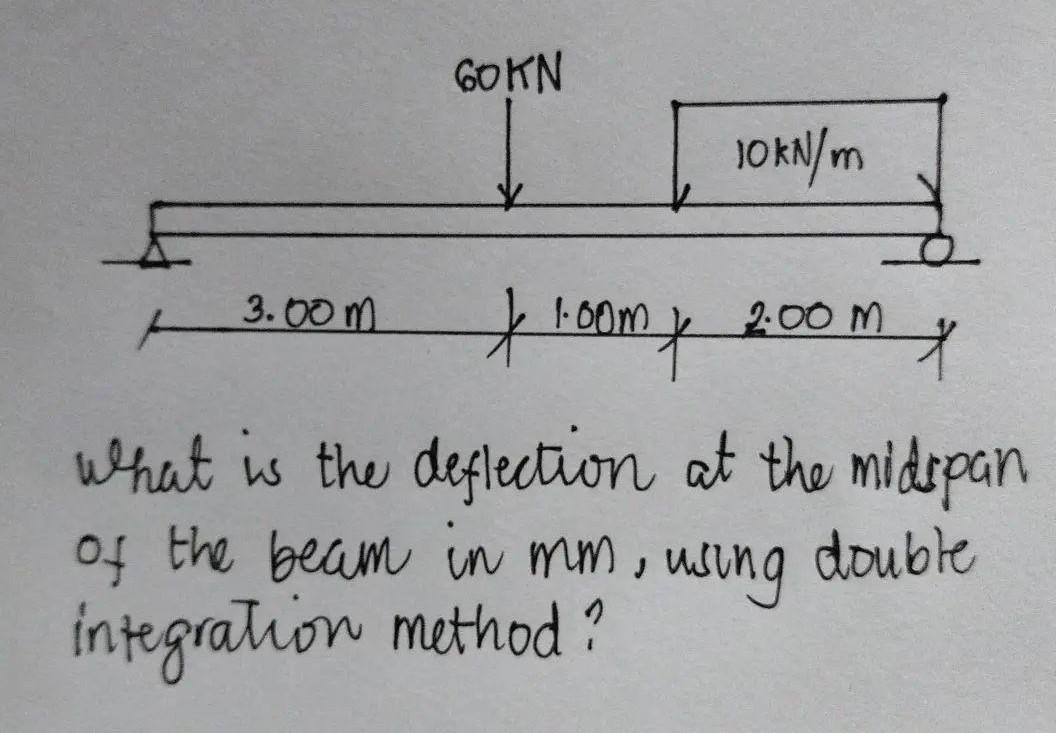 60KN
10kN/m
3.00m 1.00m 2.00 m
What is the deflection at the midspan
of the beam in mm, using double
integration method?